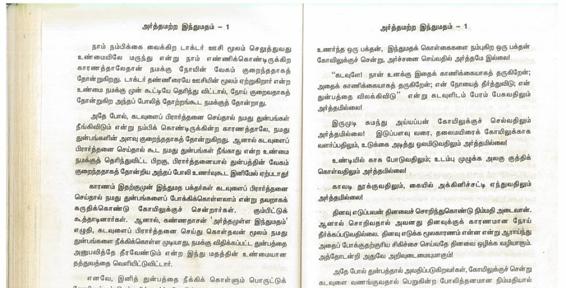 அர்த்தமற்ற இந்துமதம் – 1
நாம் நம்பிக்கை வைக்கிற டாக்டர் ஊசி மூலம் செலுத்துவது
உண்மையிலே மருந்து என்று நாம் எண்ணிக்கொண்டிருக்கிற
காரணத்தாலேதான் நமக்கு நோயின் வேகம் குறைந்ததாகத்
தோன்றுகிறது. டாக்டர் தண்ணீரையே ஊசியின் மூலம் ஏற்றுகிறார் என்ற
உண்மை நமக்கு முன் கூட்டியே தெரிந்து விட்டால், நோய் குறைவதாகத்
தோன்றுகிற அந்தப் போலித் தோற்றங்கூட நமக்குத் தோன்றாது.
அதே போல், கடவுளைப் பிரார்த்தனை செய்தால் நமது துன்பங்கள்
நீங்கிவிடும் என்று நம்பிக் கொண்டிருக்கின்ற காரணத்தாலே, நமது
துன்பங்களின் அளவு குறைந்ததாகத் தோன்றுகிறது. ஆனால் கடவுளைப்
பிரார்த்தனை செய்தால் கூட நமது துன்பங்கள் நீங்காது என்ற உண்மை
நமக்குத் தெரிந்துவிட்ட பிறகு, பிரார்த்தனையால் துன்பத்தின் வேகம்
குறைந்ததாகத் தோன்றிய அந்தப் போலி உணர்வுகூட இனிமேல் ஏற்படாது!
காரணம் இதற்குமுன் இந்துமத பக்தர்கள் கடவுளைப் பிரார்த்தனை
செய்தால் நமது துன்பங்களைப் போக்கிக்கொள்ளலாம் என்று தவறாகக்
கருதிக்கொண்டு கோயிலுக்குச் சென்றார்கள். கும்பிட்டுக்
கூத்தாடினார்கள். ஆனால், கண்ணதாசன் 'அர்த்தமுள்ள இந்துமதம்'
எழுதி, கடவுளைப் பிரார்த்தனை செய்து கொள்வதன் மூலம் நமது
துன்பங்களை நீக்கிக்கொள்ள முடியாது, நமக்கு விதிக்கப்பட்ட துன்பத்தை
அனுபவித்தே தீரவேண்டும் என்ற இந்து மதத்தின் உண்மையான
தத்துவத்தை வெளியிட்டுவிட்டார்.
எனவே, இனித் துன்பத்தை நீக்கிக் கொள்ளும் பொருட்டுக்
அர்த்தமற்ற இந்துமதம் – 1
உணர்ந்த ஒரு பக்தன், இந்துமதக் கொள்கைகளை நம்புகிற ஒரு பக்தன்
கோயிலுக்குச் சென்று, அர்ச்சனை செய்வதில் அர்த்தமே இல்லை!
"கடவுளே! நான் உனக்கு இதைக் காணிக்கையாகத் தருகிறேன்;
அதைக் காணிக்கையாகத் தருகிறேன்; என் நோயைத் தீர்த்துவிடு; என்
துன்பத்தை விலக்கிவிடு" என்று கடவுளிடம் பேரம் பேசுவதிலும்
அர்த்தமில்லை!
இருமுடி சுமந்து அய்யப்பன் கோயிலுக்குச் செல்வதிலும்
அர்த்தமில்லை! இடுப்பளவு வரை, தலைமயிரைக் கோயிலுக்காக
வளர்ப்பதிலும், உடுக்கை அடித்து ஓலமிடுவதிலும் அர்த்தமில்லை!
உண்டியில் காசு போடுவதிலும்; உடம்பு முழுக்க அலகு குத்திக்
கொள்வதிலும் அர்த்தமில்லை!
காவடி தூக்குவதிலும், கையில் அக்கினிச்சட்டி ஏந்துவதிலும்
அர்த்தமில்லை!
தினவு எடுப்பவன் தினவைச் சொறிந்துகொண்டு நிம்மதி அடைவான்.
ஆனால் சொறிவதால் அவனது தினவுக்குக் காரணமான நோய்
தீர்க்கப்படுவதில்லை. தினவு எடுக்க மூலகாரணம் என்ன என்று ஆராய்ந்து
அதைப் போக்குவதற்குரிய சிகிச்சை செய்வதே தினவை ஒழிக்க வழியாகும்.
அத்தோடன்றி அதுவே அறிவுடைமையுமாகும்!
அதே போல் துன்பத்தால் அவதிப்படுகிறவர்கள், கோயிலுக்குச் சென்று
கடவுளை வணங்குவதால் பெறுகின்ற போலித்தனமான நிம்மதியால்